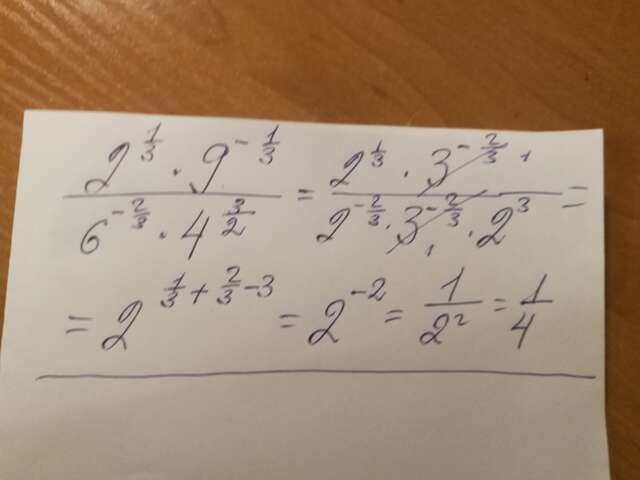 \frac{2^{\frac{1}{3}} \cdot 9^{-\frac{1}{3}}}{6^{-\frac{2}{3}} \cdot 4^{\frac{3}{2}}} = \frac{2^{\frac{1}{3}} \cdot 3^{-\frac{2}{3}} 1}{2^{-\frac{2}{3}} \cdot 3^{-\frac{2}{3}} 1 \cdot 2^{3}} =
= 2^{\frac{1}{3} + \frac{2}{3} - 3} = 2^{-2} = \frac{1}{2^{2}} = \frac{1}{4}